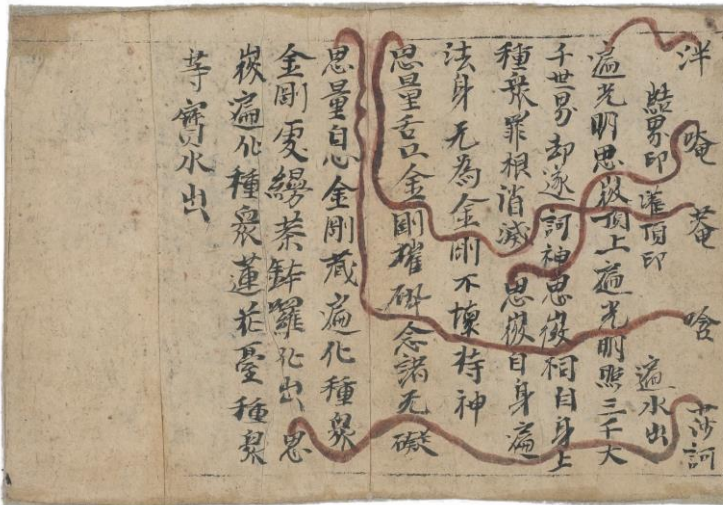 泮 唵 菴 唅 莎訶
結界印 灌頂印 遍水出
遍光明思微頂上遍光明照三千大
千世界却遂訶神思微祠自身上
種衆罪根消滅 思微自身遍
法身无為金剛不壞持神
思量舌口金剛摧碎念諸无礙
思量自心金剛藏遍化種衆
金剛更縵茶鉢羅化出 思
微遍化種衆蓮花臺種衆
等寶水出